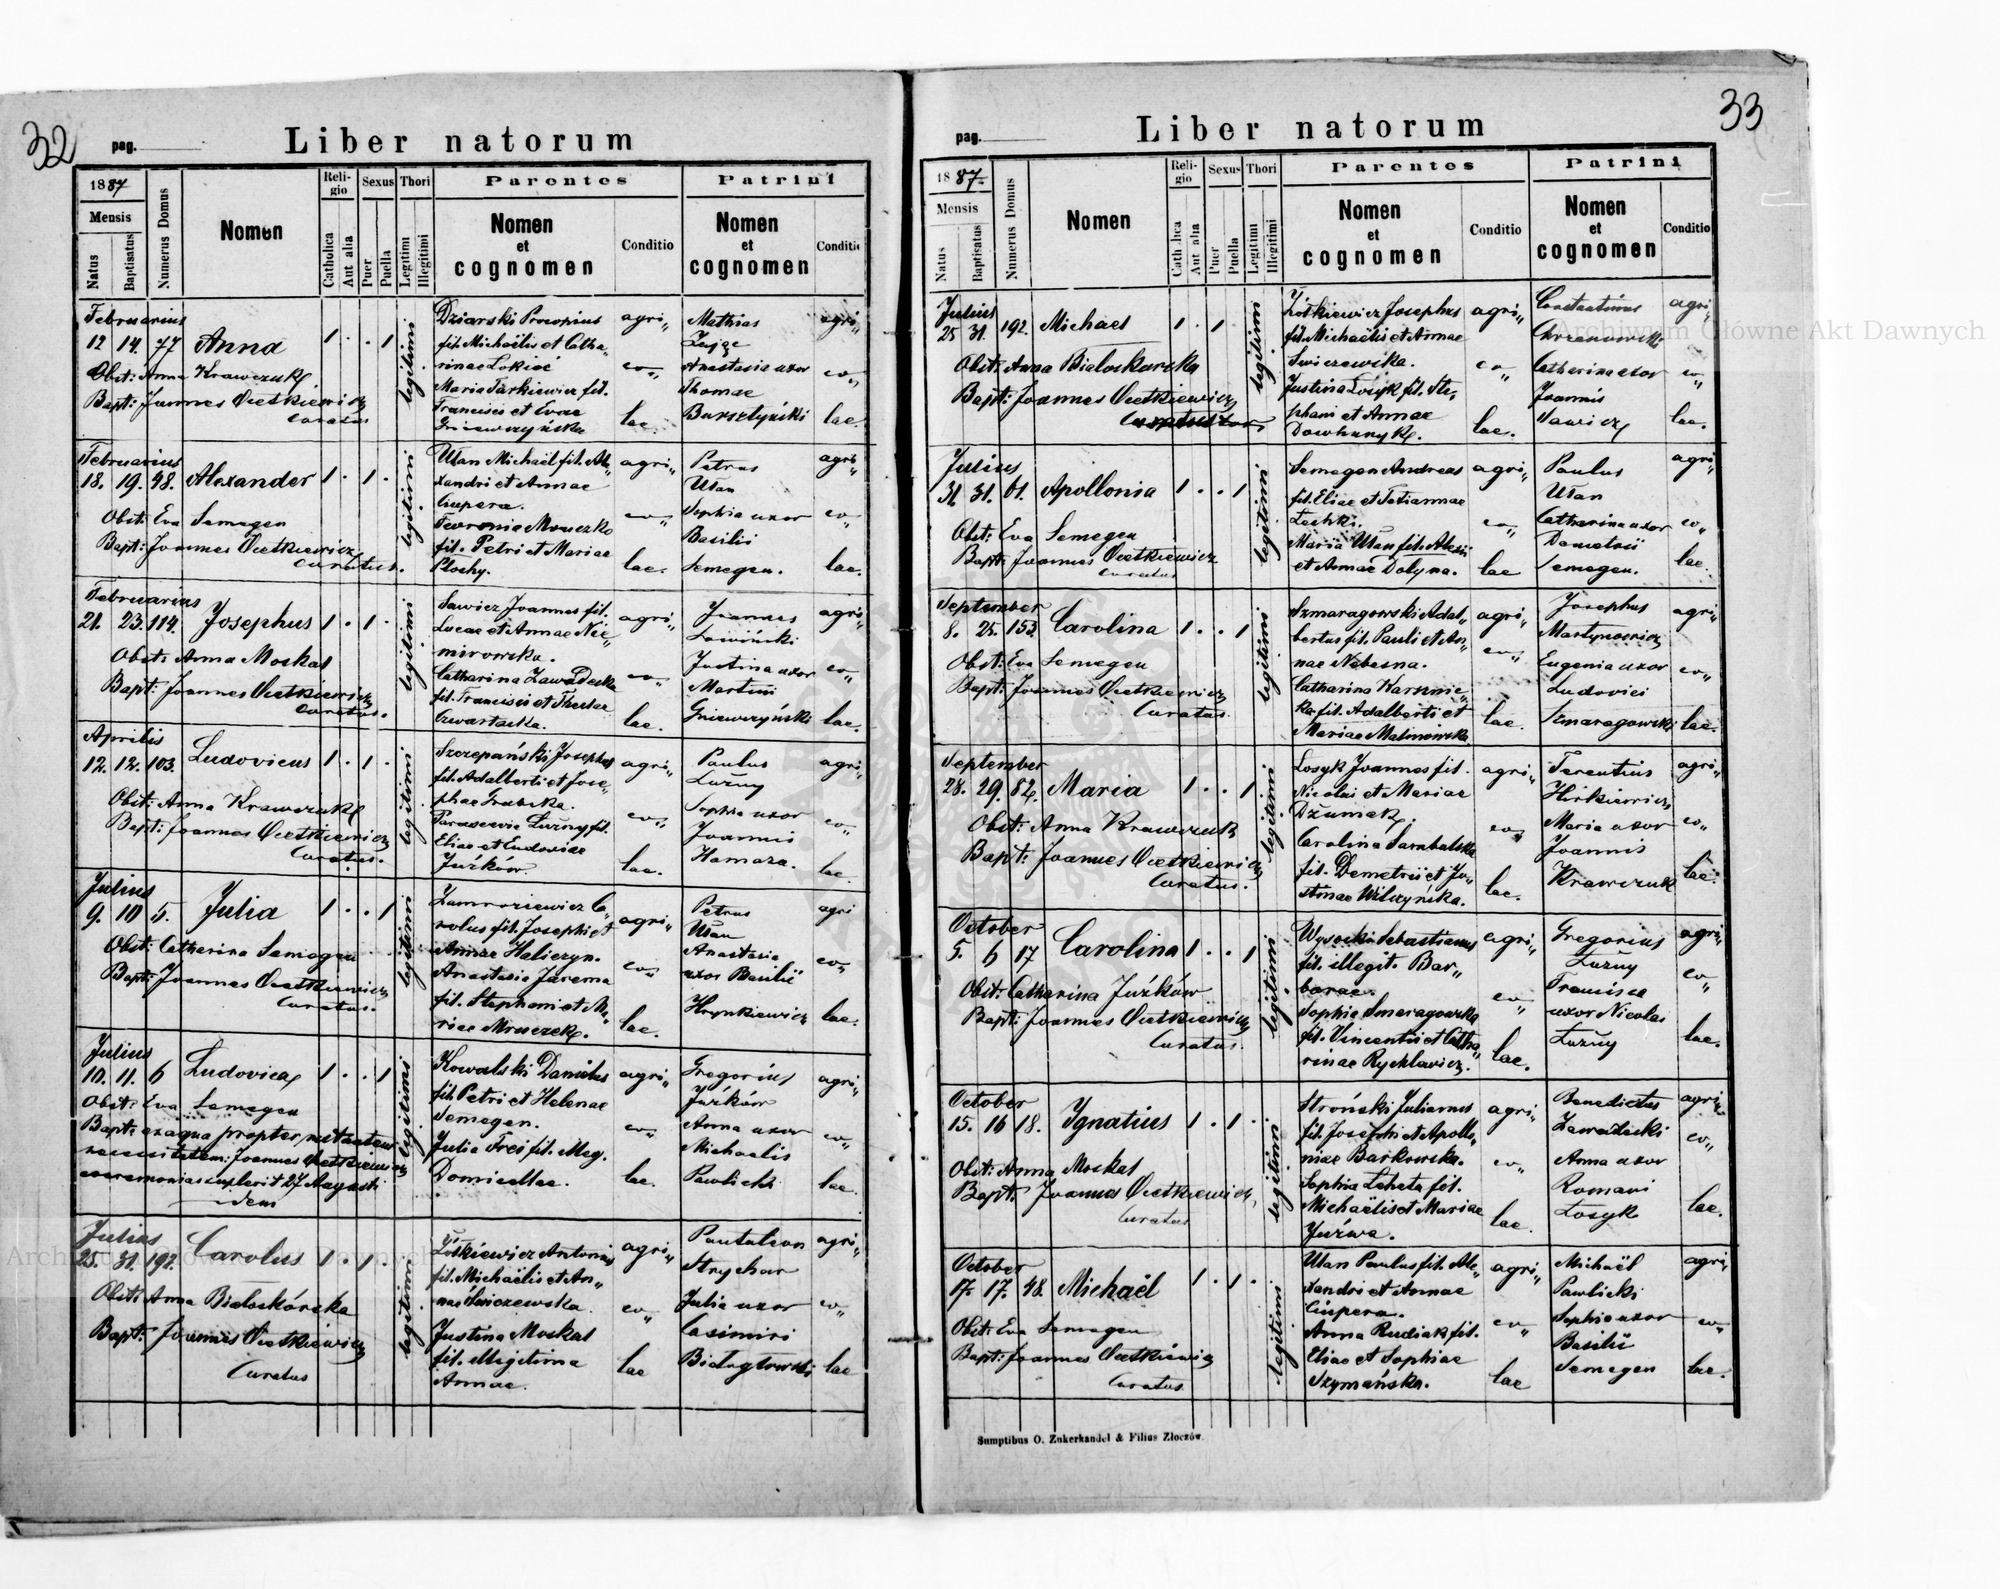 32
pag.
Liber natorum
1887
Mensis
Natus
Baptisatus
Numerus Domus
Nomen
Religio
Catholica
Aut alia
Sexus
Puer
Puella
Thori
Legitimi
Illegitimi
Parentes
Nomen
et
cognomen
Conditio
Patrini
Nomen
et
cognomen
Conditio
Februarius
12 14. 77 Anna 1 . . 1
Obst: Anna Krawczuk
Bapt: Joannes Cwetkiewicz
Curatus
legitimi
Dziarski Procopius
fil. Michaëlis et Catha„
rinae
Maria Tarkiewicz fil.
Francisci et Evae
Gniewczyńska
agri„
co„
lae.
Mathias
Anastasia uxor
Thomae
Bursztyński
agri„
co„
lae.
Februarius
18. 19. 48. Alexander 1 . 1 .
Obst: Eva Semegen
Bapt: Joannes Cwetkiewicz
curatus.
legitimi
Ułan Michaël fil. Ale„
xandri et Annae
Ciupera.
Fevronia Mruczko
fil. Petri et Mariae
Płochy.
agri„
co„
lae.
Petrus
Ułan
Sophia uxor
Basilii
Semegen.
agri„
co„
lae.
Februarius
21. 23. 114. Josephus 1 . 1 .
Obst: Anna Moskal
Bapt: Joannes Cwetkiewicz
curatus.
legitimi
Sawicz Joannes fil.
Lucae et Annae Nie„
mirowska.
Catharina Zawadecka
fil. Francisci et Theclae
Czwartacka.
agri„
co„
lae.
Joannes
Justina uxor
Martini
Gniewczyński
agri„
co„
lae.
Aprilis
12. 12. 103. Ludovicus 1 . 1 .
Obst: Anna Krawczuk
Bapt: Joannes Cwetkiewicz
Curatus.
legitimi
Szczepański Josephus
fil. Adalberti et Jose„
phae Grabska.
Parascevia Łużny fil.
Eliae et Ludovicae
Jużków.
agri„
co„
lae.
Paulus
Łużny
Sophia uxor
Joannis
Hamara.
agri„
co„
lae.
Julius
9. 10 5. Julia 1 . . 1
Obst: Catharina Semegen
Bapt: Joannes Cwetkiewicz
Curatus.
legitimi
Ca„
rolus fil. Josephi et
Annae Haliczyn.
Anastasia Jarema
fil. Stephani et Ma„
riae Mruczek.
agri„
co„
lae.
Petrus
Ułan
Anastasia
uxor Basilii
Hrynkiewicz
agri
co„
lae.
Julius
10. 11. 6 Ludovica 1 . . 1
Obst: Eva Semegen
Bapt: ex aqua propter instantem
necessitatem: Joannes Cwetkiewicz
ceremonias suplevit 27 Augusti
idem
legitimi
Kowalski Daniel
fil. Petri et Helenae
Semegen.
Julia Frei fil. illeg.
Domicellae.
agri„
co„
lae.
Gregorius
Jużków
Anna uxor
Michaelis
Pawlicki
agri„
co„
lae.
Julius
25. 31. 192. Carolus 1 . 1 .
Obst: Anna Białoskórska
Bapt: Joannes Cwetkiewicz
Curatus
legitimi
Żółkiewicz Antonius
fil. Michaëlis et An„
nae Świczewska.
Justina Moskal
fil. illegitima
Annae.
agri„
co„
lae
Pantaleon
Strychar
Julia uxor
Casimiri
agri„
co„
lae
33
pag.
Liber natorum
1887.
Mensis
Natus
Baptisatus
Numerus Domus
Nomen
Religio
Catholica
Aut alia
Sexus
Puer
Puella
Thori
Legitimi
Illegitimi
Parentes
Nomen
et
cognomen
Conditio
Patrini
Nomen
et
cognomen
Conditio
Julius
25 31. 192. Michael 1 . 1 .
Obst: Anna Białoskórska
Bapt: Joannes Cwetkiewicz
legitimi
Żółkiewicz Josephus
fil. Michaëlis et Annae
Swiczewska.
Justina Łosyk fil. Ste„
phani et Annae
Dowhanyk.
agri„
co„
lae.
Constantinus
Chrzanowski
Catharina uxor
Joannis
Sawicz
agri„
co„
lae.
Julius
31. 31. 61. Apollonia 1 . . 1
Obst: Eva Semegen
Bapt: Joannes Cwetkiewicz
curatus
legitimi
Semegen Andreas
fil. Eliae et Tatiannae
Leshki.
Maria Ułan fil. Alexii
et Annae Dolyna.
agri„
co„
lae
Paulus
Ułan
Catharina uxor
Demetrii
Semegen.
agri„
co„
lae.
September
8. 25. 153. Carolina 1 . . 1
Obst: Eva Semegen
Bapt: Joannes Cwetkiewicz
Curatus.
legitimi
Szmaragowski Adal„
bertus fil. Pauli et An„
nae Nebesna.
Catharina Karpnic„
ka fil. Adalberti et
Mariae Malinowska
agri„
co„
lae.
Josephus
Martynowicz
Eugenia uxor
Ludovici
Szmaragowski
agri„
co„
lae.
September
28. 29. 82. Maria 1 . . 1
Obst: Anna Krawczuk
Bapt: Joannes Cwetkiewicz
Curatus.
legitimi
Łosyk Joannes fil.
Nicolai et Mariae
Dżumak.
Carolina Sambalska
fil. Demetrii et Jo„
Annae Wilczyńska.
agri„
co„
lae.
Terentius
Hirkiewicz
Maria uxor
Joannis
Krawczuk
agri„
co„
lae.
October
5. 6 17 Carolina 1 . . 1
Obst: Catharina Jużków
Bapt: Joannes Cwetkiewicz
Curatus.
legitimi
Wysocki Sebastianus
fil. illegit. Bar„
barae.
Sophia Smaragowska
fil. Vincentii et Catha„
rinae Rycklewicz.
agri„
co„
lae.
Gregorius
Łużny
Francisca
uxor Nicolai
Łużny
agri„
co„
lae.
October
15. 16 18. Ignatius 1 . 1 .
Obst: Anna Moskal
Bapt: Joannes Cwetkiewicz,
Curatus
legitimi
Stroński Julianus
fil. Josephi et Apollo„
niae Barkowska.
Sophia Leheta fil.
Michaëlis et Mariae
Jużwa.
agri„
co„
lae
Benedictus
Zawadecki
Anna uxor
Romani
Łosyk
agri„
co„
lae.
October
17. 17. 48. Michaël 1 . 1 .
Obst: Eva Semegen
Bapt: Joannes Cwetkiewicz
Curatus
legitimi
Ułan Paulus fil. Ale„
xandri et Annae
Ciupera.
Anna Rudiak fil.
Eliae et Sophiae
Szymańska.
agri„
co„
lae
Michaël
Pawlicki
Sophia uxor
Basilii
Semegen
agri„
co„
lae.
Sumptibus O. Zukerkandel & Filius Złoczów.
Archiwum Główne Akt Dawnych
Archiwum Główne Akt Dawnych